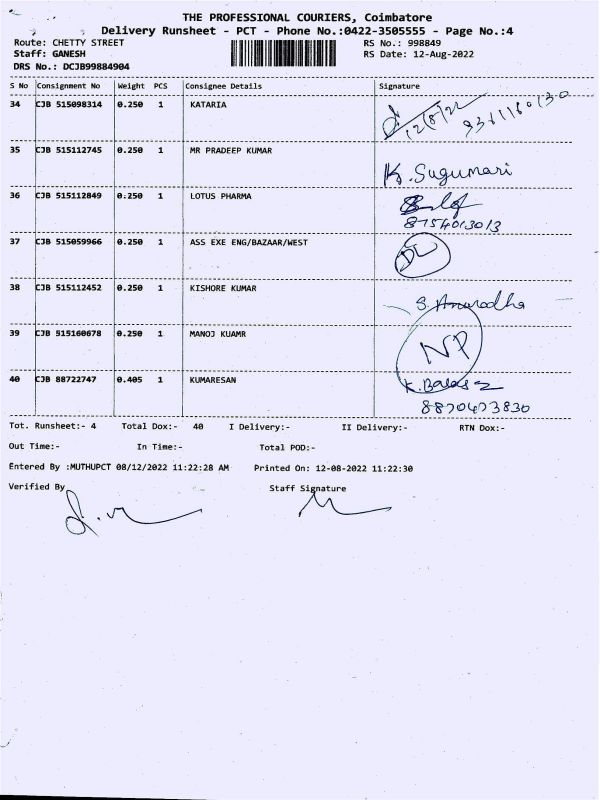 THE PROFESSIONAL COURIERS, Coimbatore
Delivery Runsheet - PCT - Phone No.:0422-3505555 - Page No.:4
Route: CHETTY STREET RS No.: 998849
Staff: GANESH RS Date: 12-Aug-2022
DRS No.: DCJB99884904
S No Consignment No Weight PCS Consignee Details Signature
34 CJB 515098314 0.250 1 KATARIA
12/8/22
35 CJB 515112745 0.250 1 MR PRADEEP KUMAR
K. Sugumari
36 CJB 515112849 0.250 1 LOTUS PHARMA
8754013013
37 CJB 515059966 0.250 1 ASS EXE ENG/BAZAAR/WEST
38 CJB 515112452 0.250 1 KISHORE KUMAR
S. Anuradha
39 CJB 515160678 0.250 1 MANOJ KUAMR
NP
40 CJB 88722747 0.405 1 KUMARESAN
8870473830
Tot. Runsheet:- 4 Total Dox:- 40 I Delivery:- II Delivery:- RTN Dox:-
Out Time:- In Time:- Total POD:-
Entered By :MUTHUPCT 08/12/2022 11:22:28 AM Printed On: 12-08-2022 11:22:30
Verified By Staff Signature